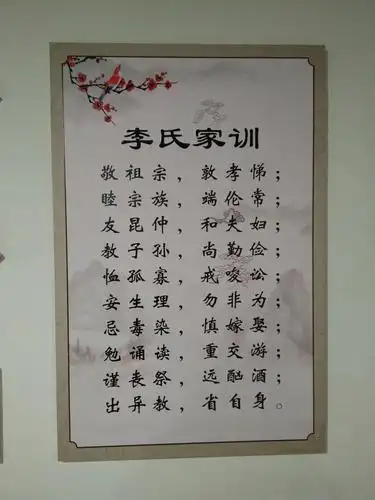 李氏家训
敬祖宗，敦孝悌；
睦宗族，端伦常；
友昆仲，和夫妇；
教子孙，尚勤俭；
恤孤寡，戒唆讼；
安生理，勿非为；
忌毒染，慎嫁娶；
勉诵读，重交游；
谨丧祭，远酗酒；
出异教，省自身。